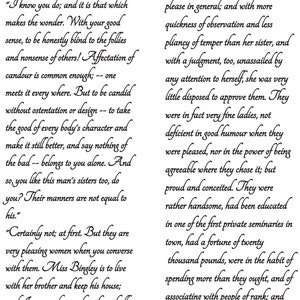 "I know you do; and it is that which
makes the wonder. With your good
sense, to be honestly blind to the follies
and nonsense of others! Affectation of
candour is common enough; -- one
meets it every where. But to be candid
without ostentation or design -- to take
the good of every body's character and
make it still better, and say nothing of
the bad -- belongs to you alone. And
so, you like this man's sisters too, do
you? Their manners are not equal to
his."
"Certainly not; at first. But they are
very pleasing women when you converse
with them. Miss Bingley is to live
with her brother and keep his house;
please in general; and with more
quickness of observation and less
pliancy of temper than her sister, and
with a judgment, too, unassailed by
any attention to herself, she was very
little disposed to approve them. They
were in fact very fine ladies, not
deficient in good humour when they
were pleased, nor in the power of being
agreeable where they chose it; but
proud and conceited. They were
rather handsome, had been educated
in one of the first private seminaries in
town, had a fortune of twenty
thousand pounds, were in the habit of
spending more than they ought, and of
associating with people of rank; and